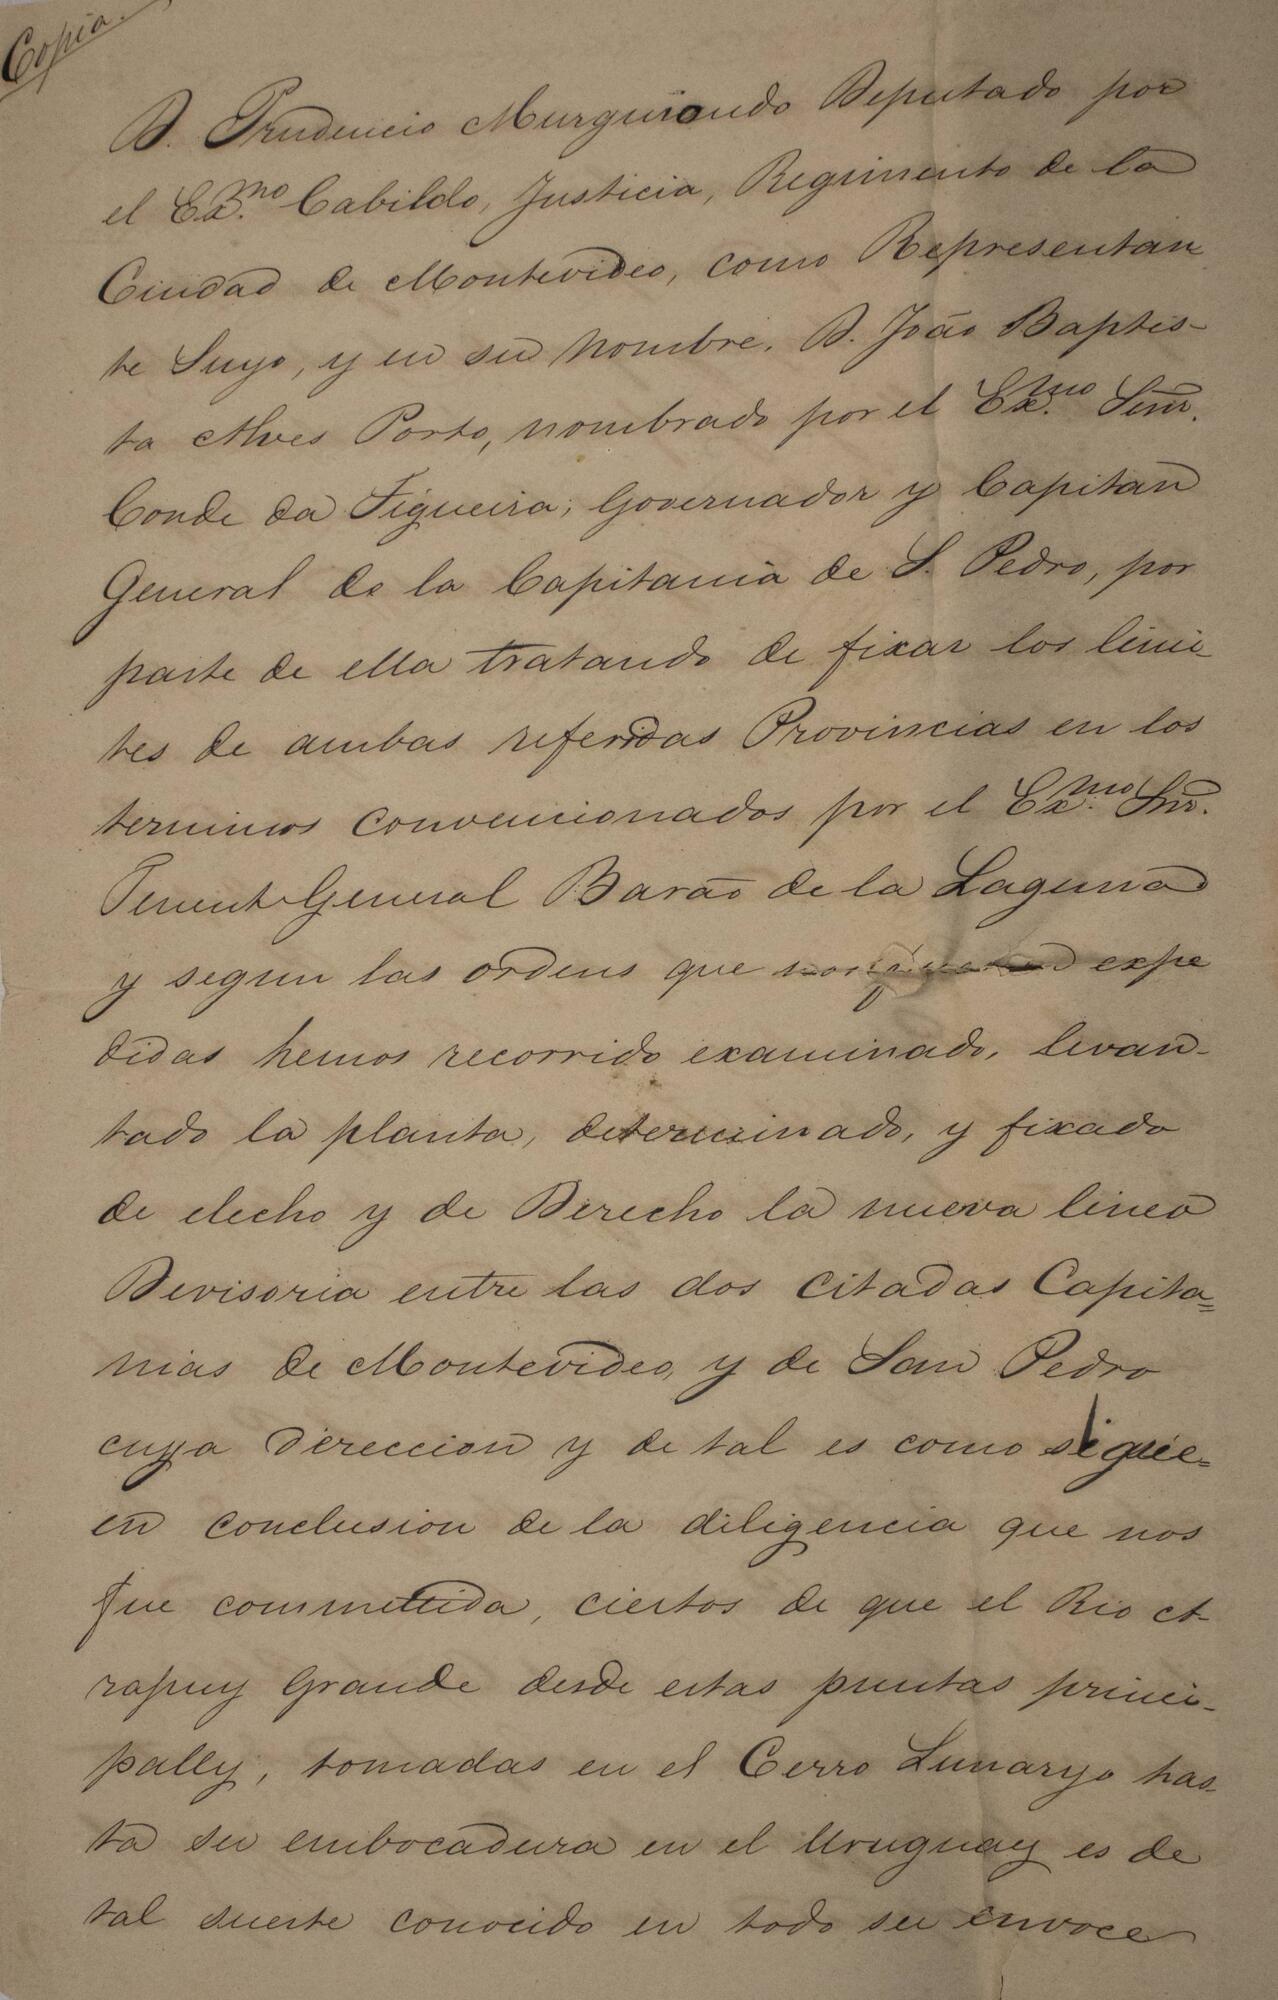 Copia.
D. Prudencio Murguiondo Deputado por
el Ex.mo Cabildo, Justicia, Regimento de la
Ciudad de Montevideo, como Representan
te Suyo, y en su nombre. D. João Baptis-
ta Alves Porto, nombrado por el Ex.mo Señr.
Conde da Figueira, Governador y Capitan
General de la Capitania de S. Pedro, por
parte de ella tratando de fixar los limi-
tes de ambas referidas Provincias en los
terminos convencionados por el Ex.mo Snr.
Tenente General Barão de la Laguna
y segun las ordens que expe
didas hemos recorrido examinado, levan-
tado la planta, determinado, y fixado
de elecho y de Derecho la nueva linea
Devisoria entre las dos citadas Capita=
nias de Montevideo, y de San Pedro
cuya direccion y de tal es como sigue=
en conclusion de la diligencia que nos
fue committida, ciertos de que el Rio A-
rapuy Grande desde estas puntas princi-
pally, tomadas en el Cerro Lunaryo has-
ta su embocadura en el Uruguay es de
tal suerte conocido en todo su envoce